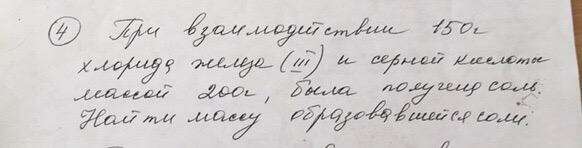 4 При взаимодействии 150г
хлорида железа (III) и серной кислоты
массой 200г, была получена соль.
Найти массу образовавшейся соли.